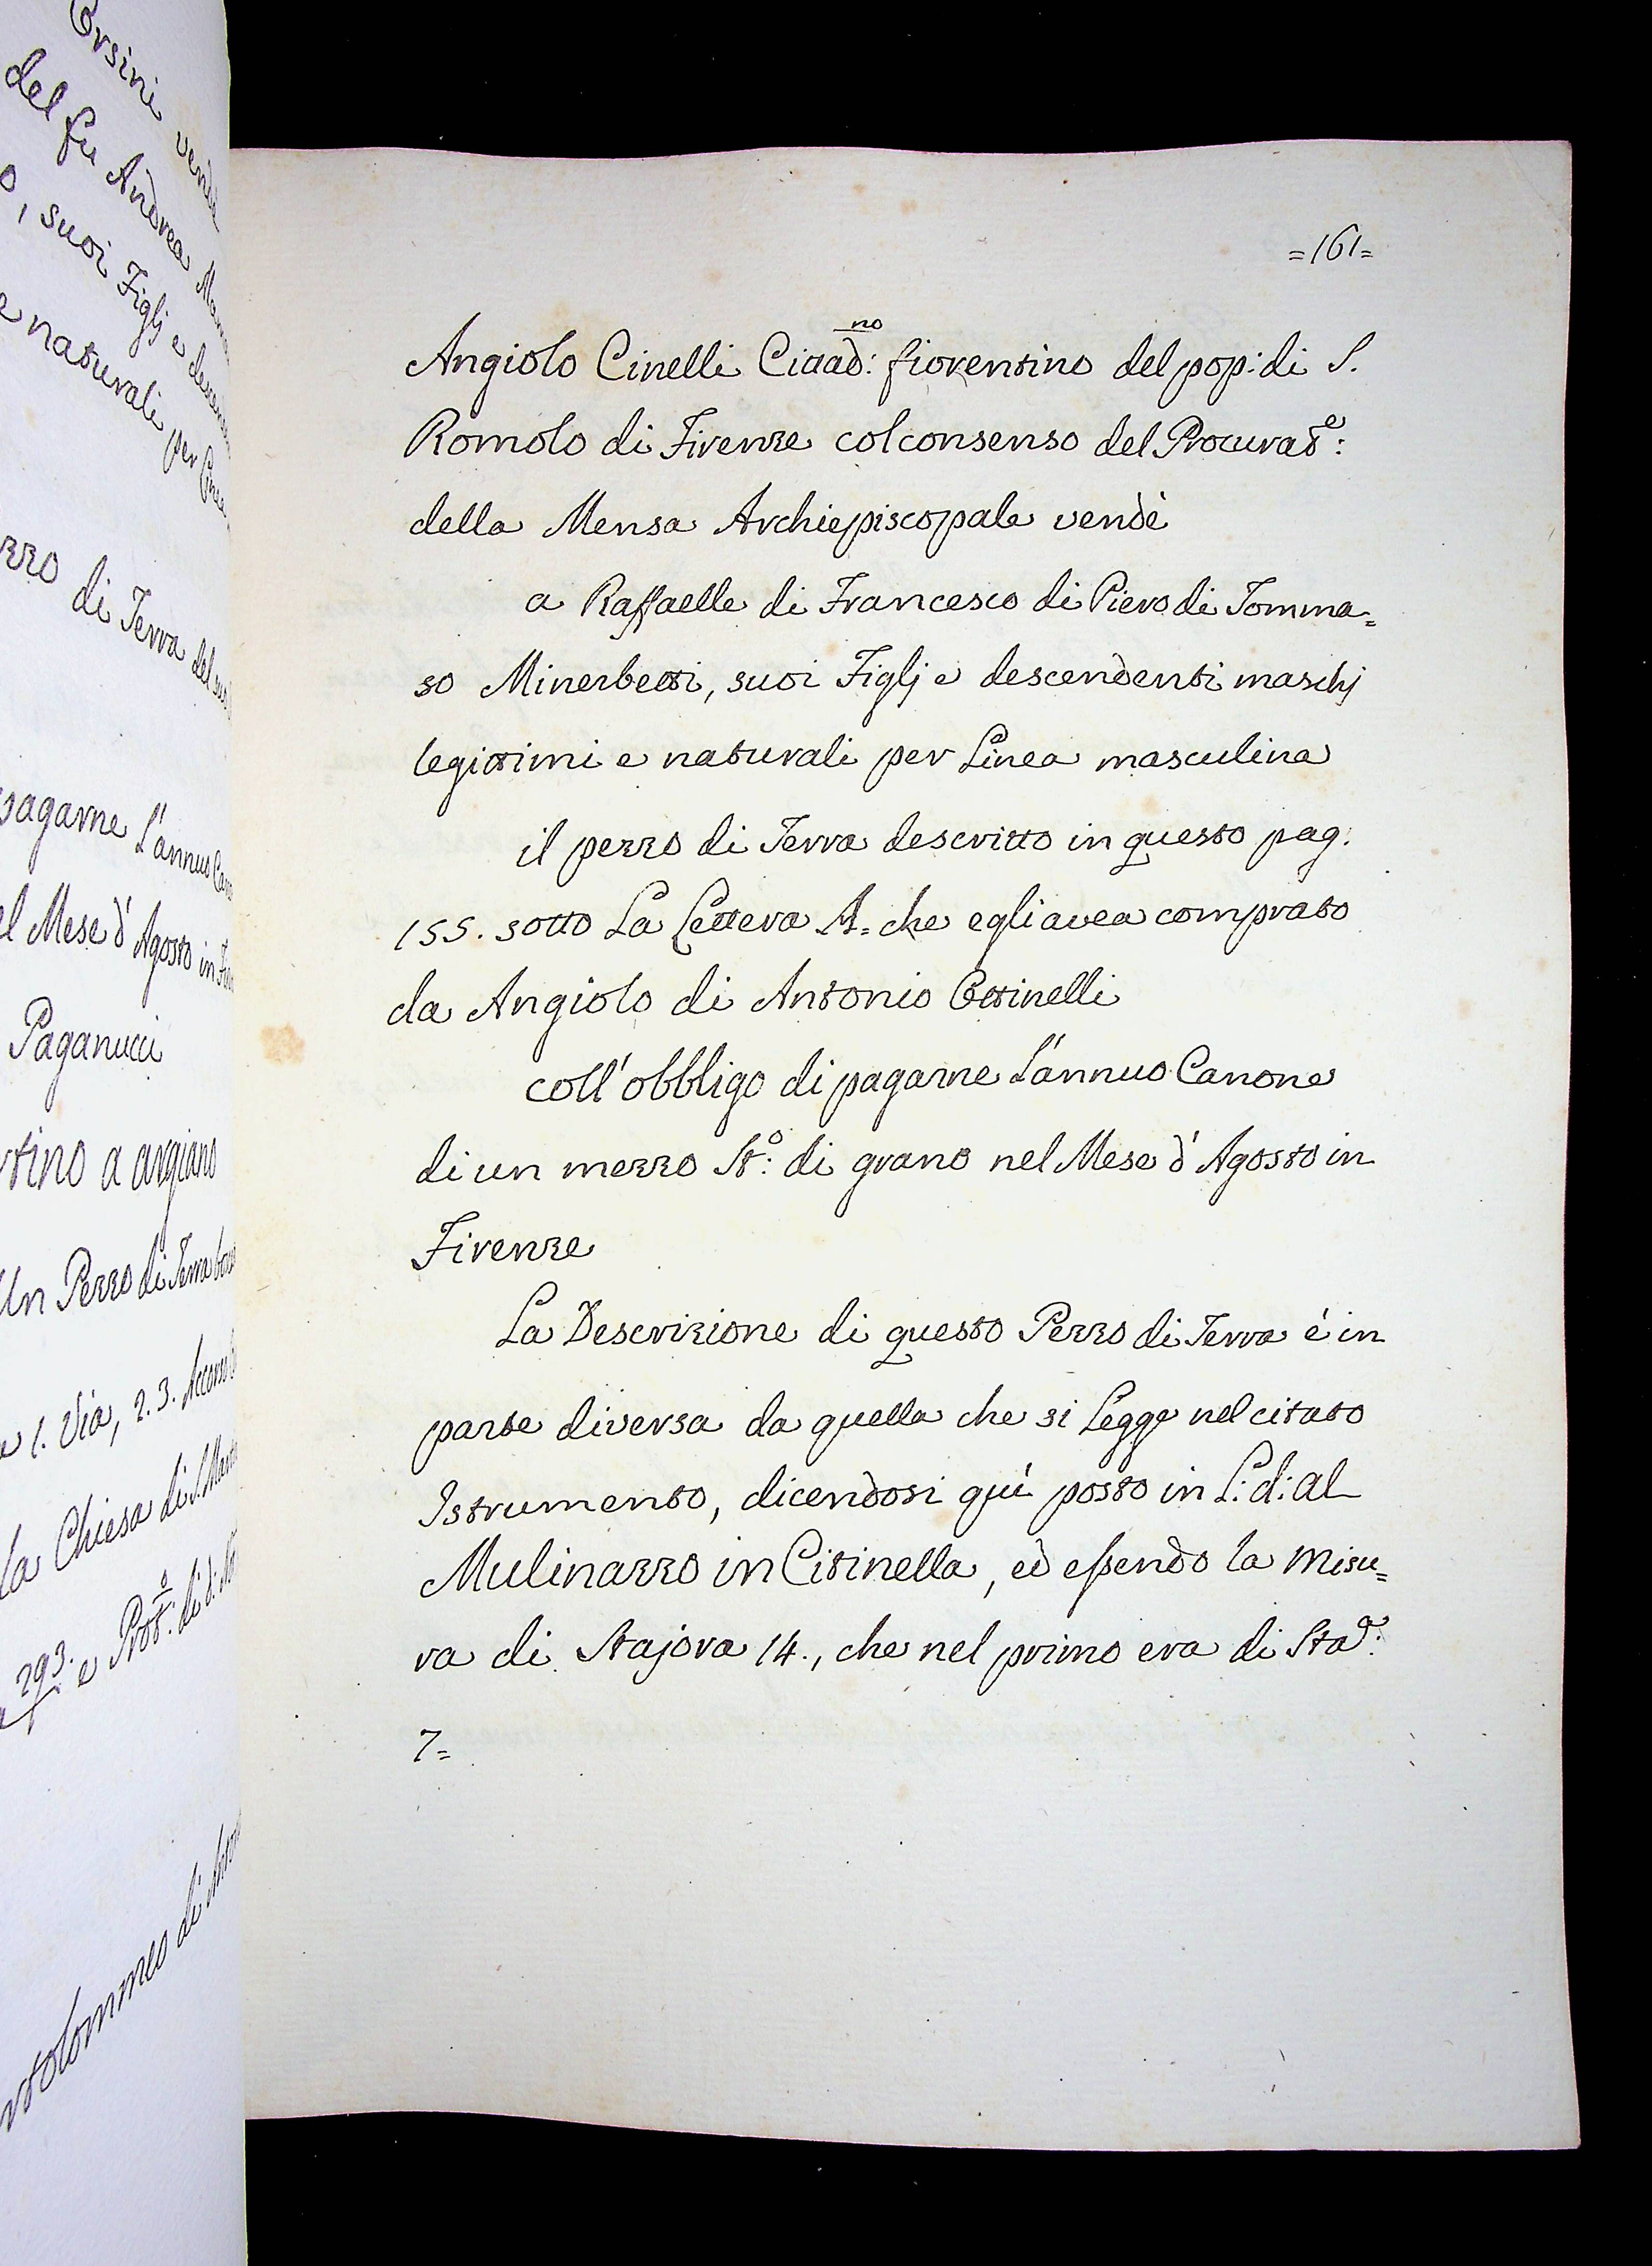 Orsini vende
del fu Andrea
o, suoi Figlj e
e naturali per
zzo di Terra del
pagarne L'annuo
el Mese d'Agosto in
Paganucci
rtino a argiano
Un Pezzo di Terra
e 1. Via, 2. 3.
la Chiesa di S.
293. e Prot.º: di
rtolommeo di
=161=
Angiolo Cinelli Cittad:no fiorentino del pop: di S.
Romolo di Firenze col consenso del Procurat.e:
della Mensa Archiepiscopale vendè
a Raffaelle di Francesco di Piero di Tomma=
so Minerbetti, suoi Figlj e descendenti maschj
legittimi e naturali per Linea masculina
il pezzo di Terra descritto in questo pag:
155. sotto La Lettera A= che egli avea comprato
da Angiolo di Antonio Ottinelli
coll'obbligo di pagarne L'annuo Canone
di un mezzo St:º di grano nel Mese d'Agosto in
Firenze
La Descrizione di questo Pezzo di Terra è in
parte diversa da quella che si Legge nel citato
Istrumento, dicendosi quì posto in L: d: al
Mulinazzo in Citinella, ed essendo la misu=
ra di Stajora 14., che nel primo era di Sta:ª
7=